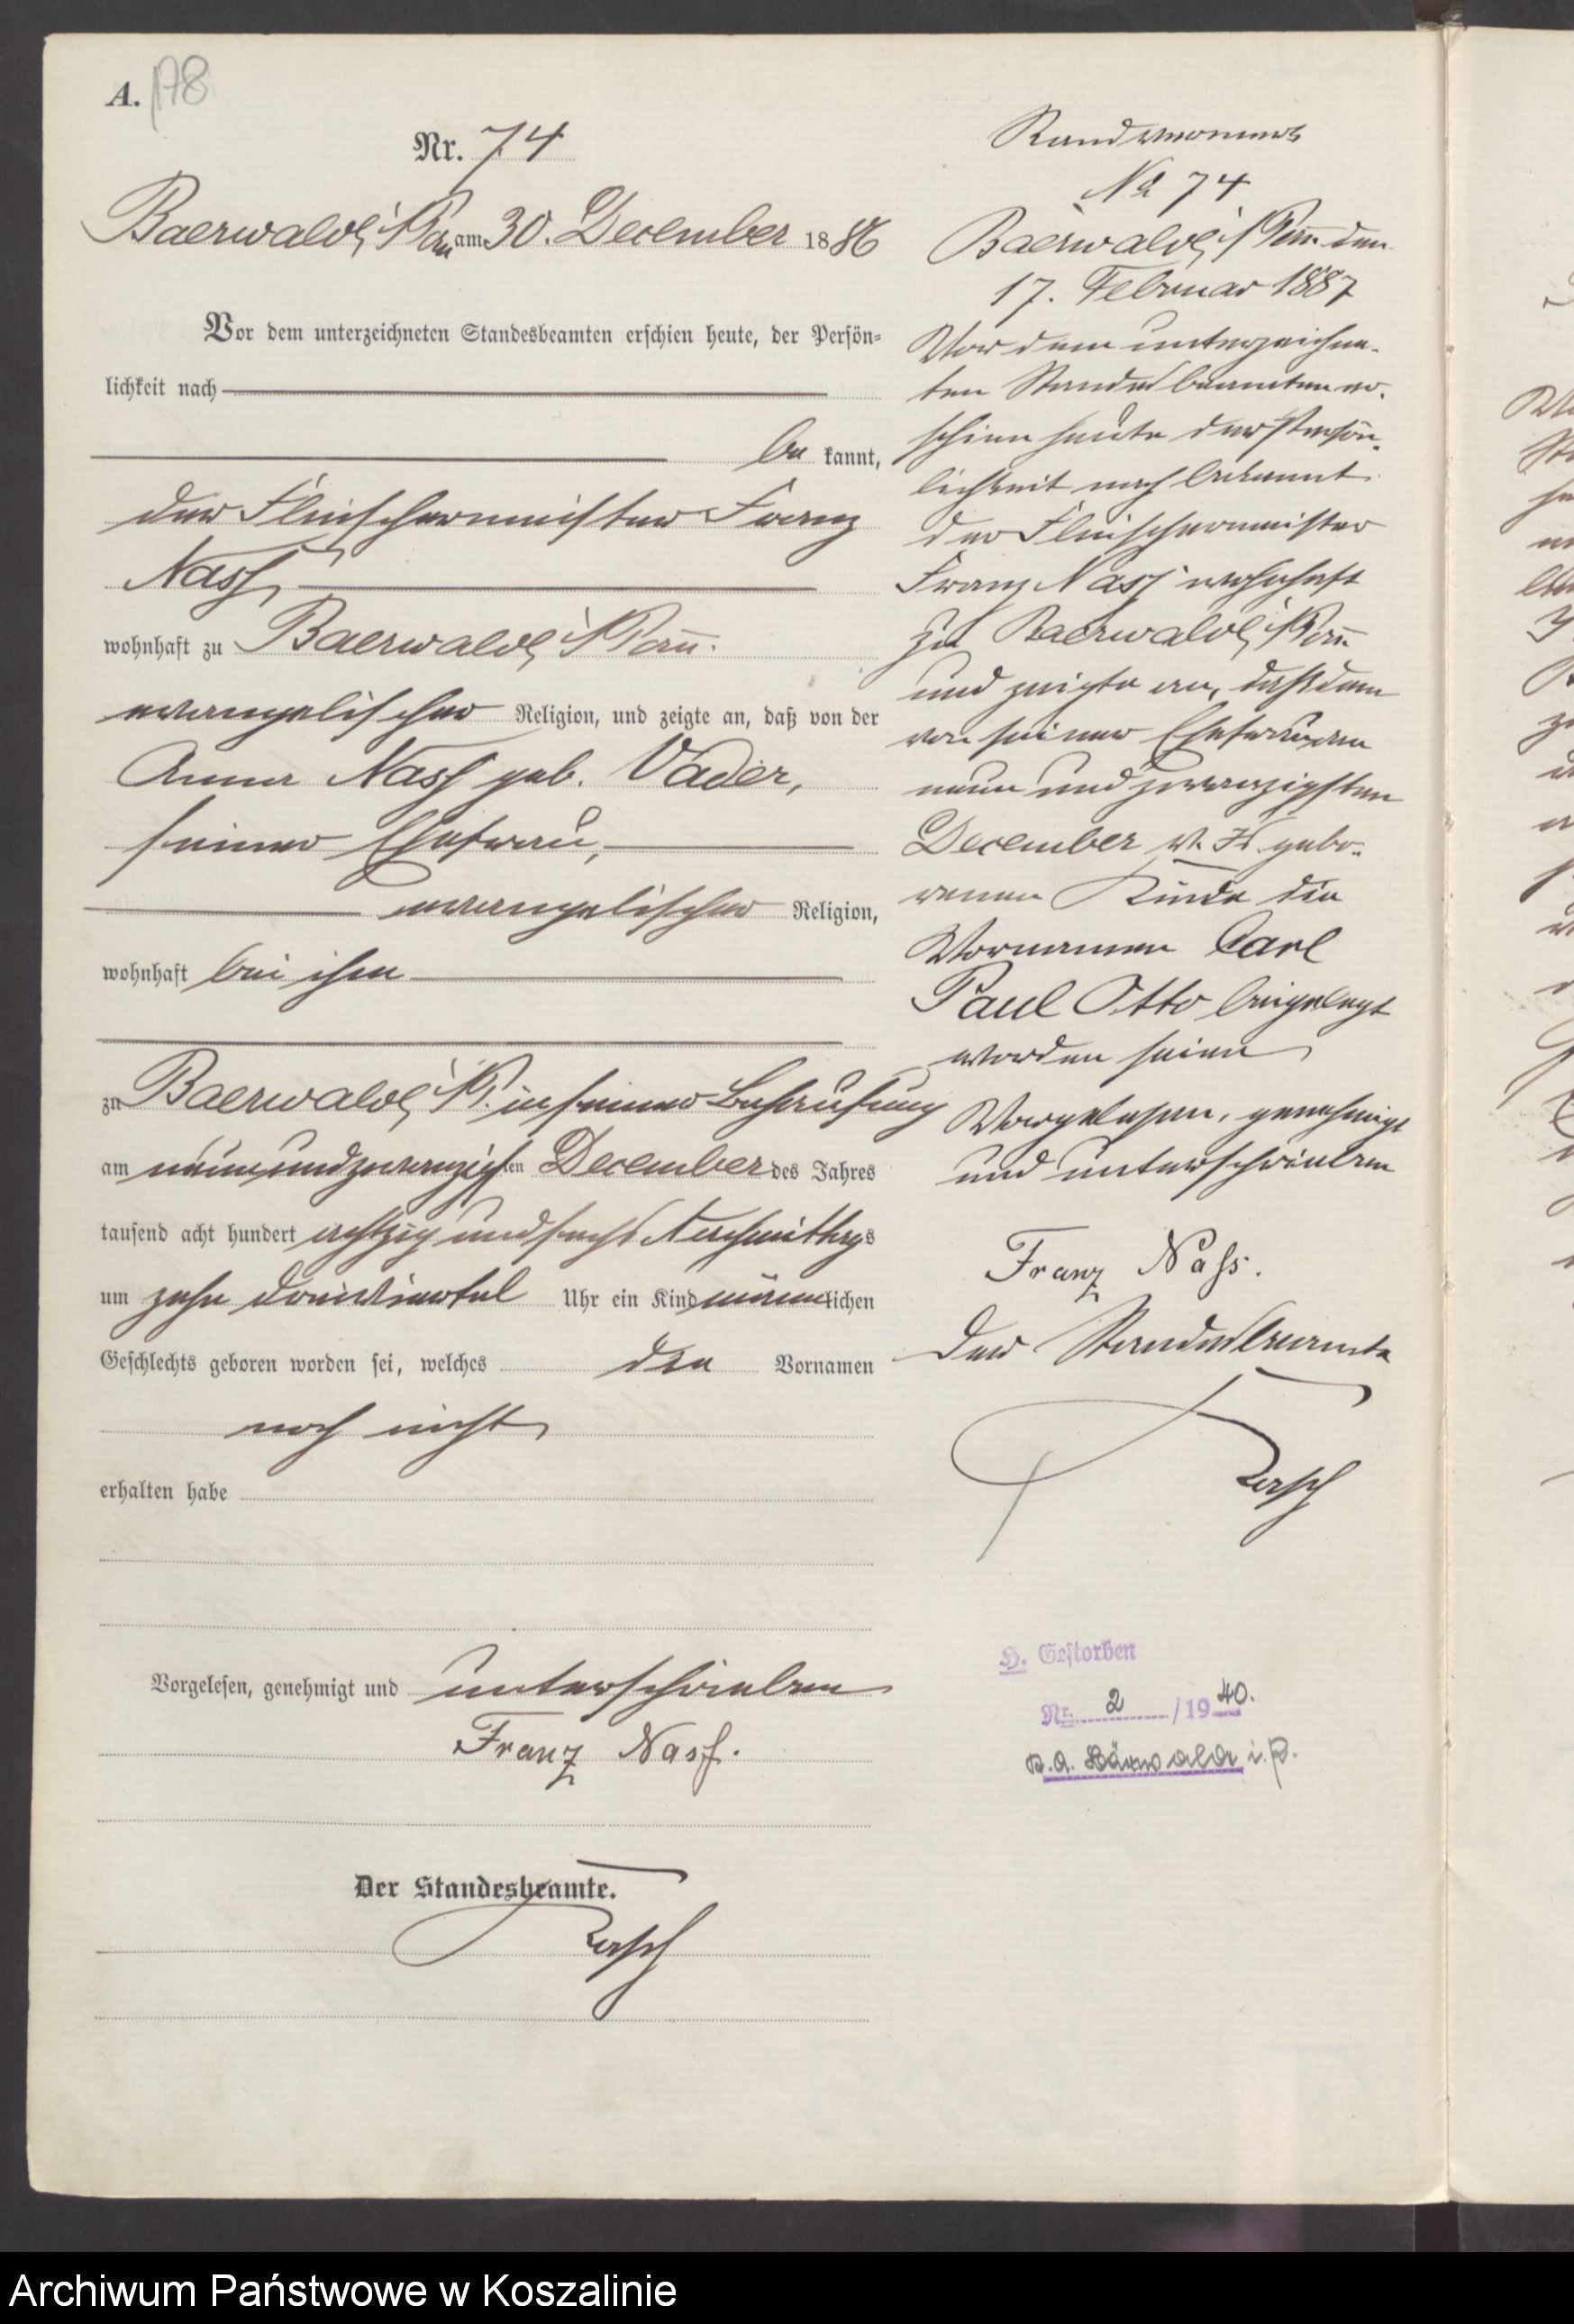 A. 178
Nr. 74
Baerwalde, i/Pom am 30. December 1886
Vor dem unterzeichneten Standesbeamten erschien heute, der Persön-
lichkeit nach
be kannt,
der Fleischermeister Franz
Nass,
wohnhaft zu Baerwalde, i/Pom.
evangelischer Religion, und zeigte an, daß von der
Anna Nass geb. Vader,
seiner Ehefrau,
evangelischer Religion,
wohnhaft bei ihm
zu Baerwalde, i/P. in seiner Behausung
am neunundzwanzigsten December des Jahres
tausend acht hundert achtzig und sechs Nachmittags
um zehn dreiviertel Uhr ein Kind männlichen
Geschlechts geboren worden sei, welches die Vornamen
noch nicht
erhalten habe
Vorgelesen, genehmigt und unterschrieben
Franz Nass.
Der Standesbeamte.
Randvermerk
No 74
Baerwalde, i/Pom. den
17. Februar 1887
Vor dem unterzeichne-
ten Standesbeamten er-
schien heute der Persön-
lichkeit nach bekannt
der Fleischermeister
Franz Nass wohnhaft
zu Baerwalde, i/Pom.
und zeigte an, daß dem
von seiner Ehefrau am
neun und zwanzigsten
December v. Js. gebo-
renen Kinde die
Vornamen Carl
Paul Otto beigelegt
worden seien
Vorgelesen, genehmigt
und unterschrieben
Franz Nass.
Der Standesbeamte
H. Gestorben
Nr. 2 /1940.
Bärwalde i. P.
Archiwum Państwowe w Koszalinie